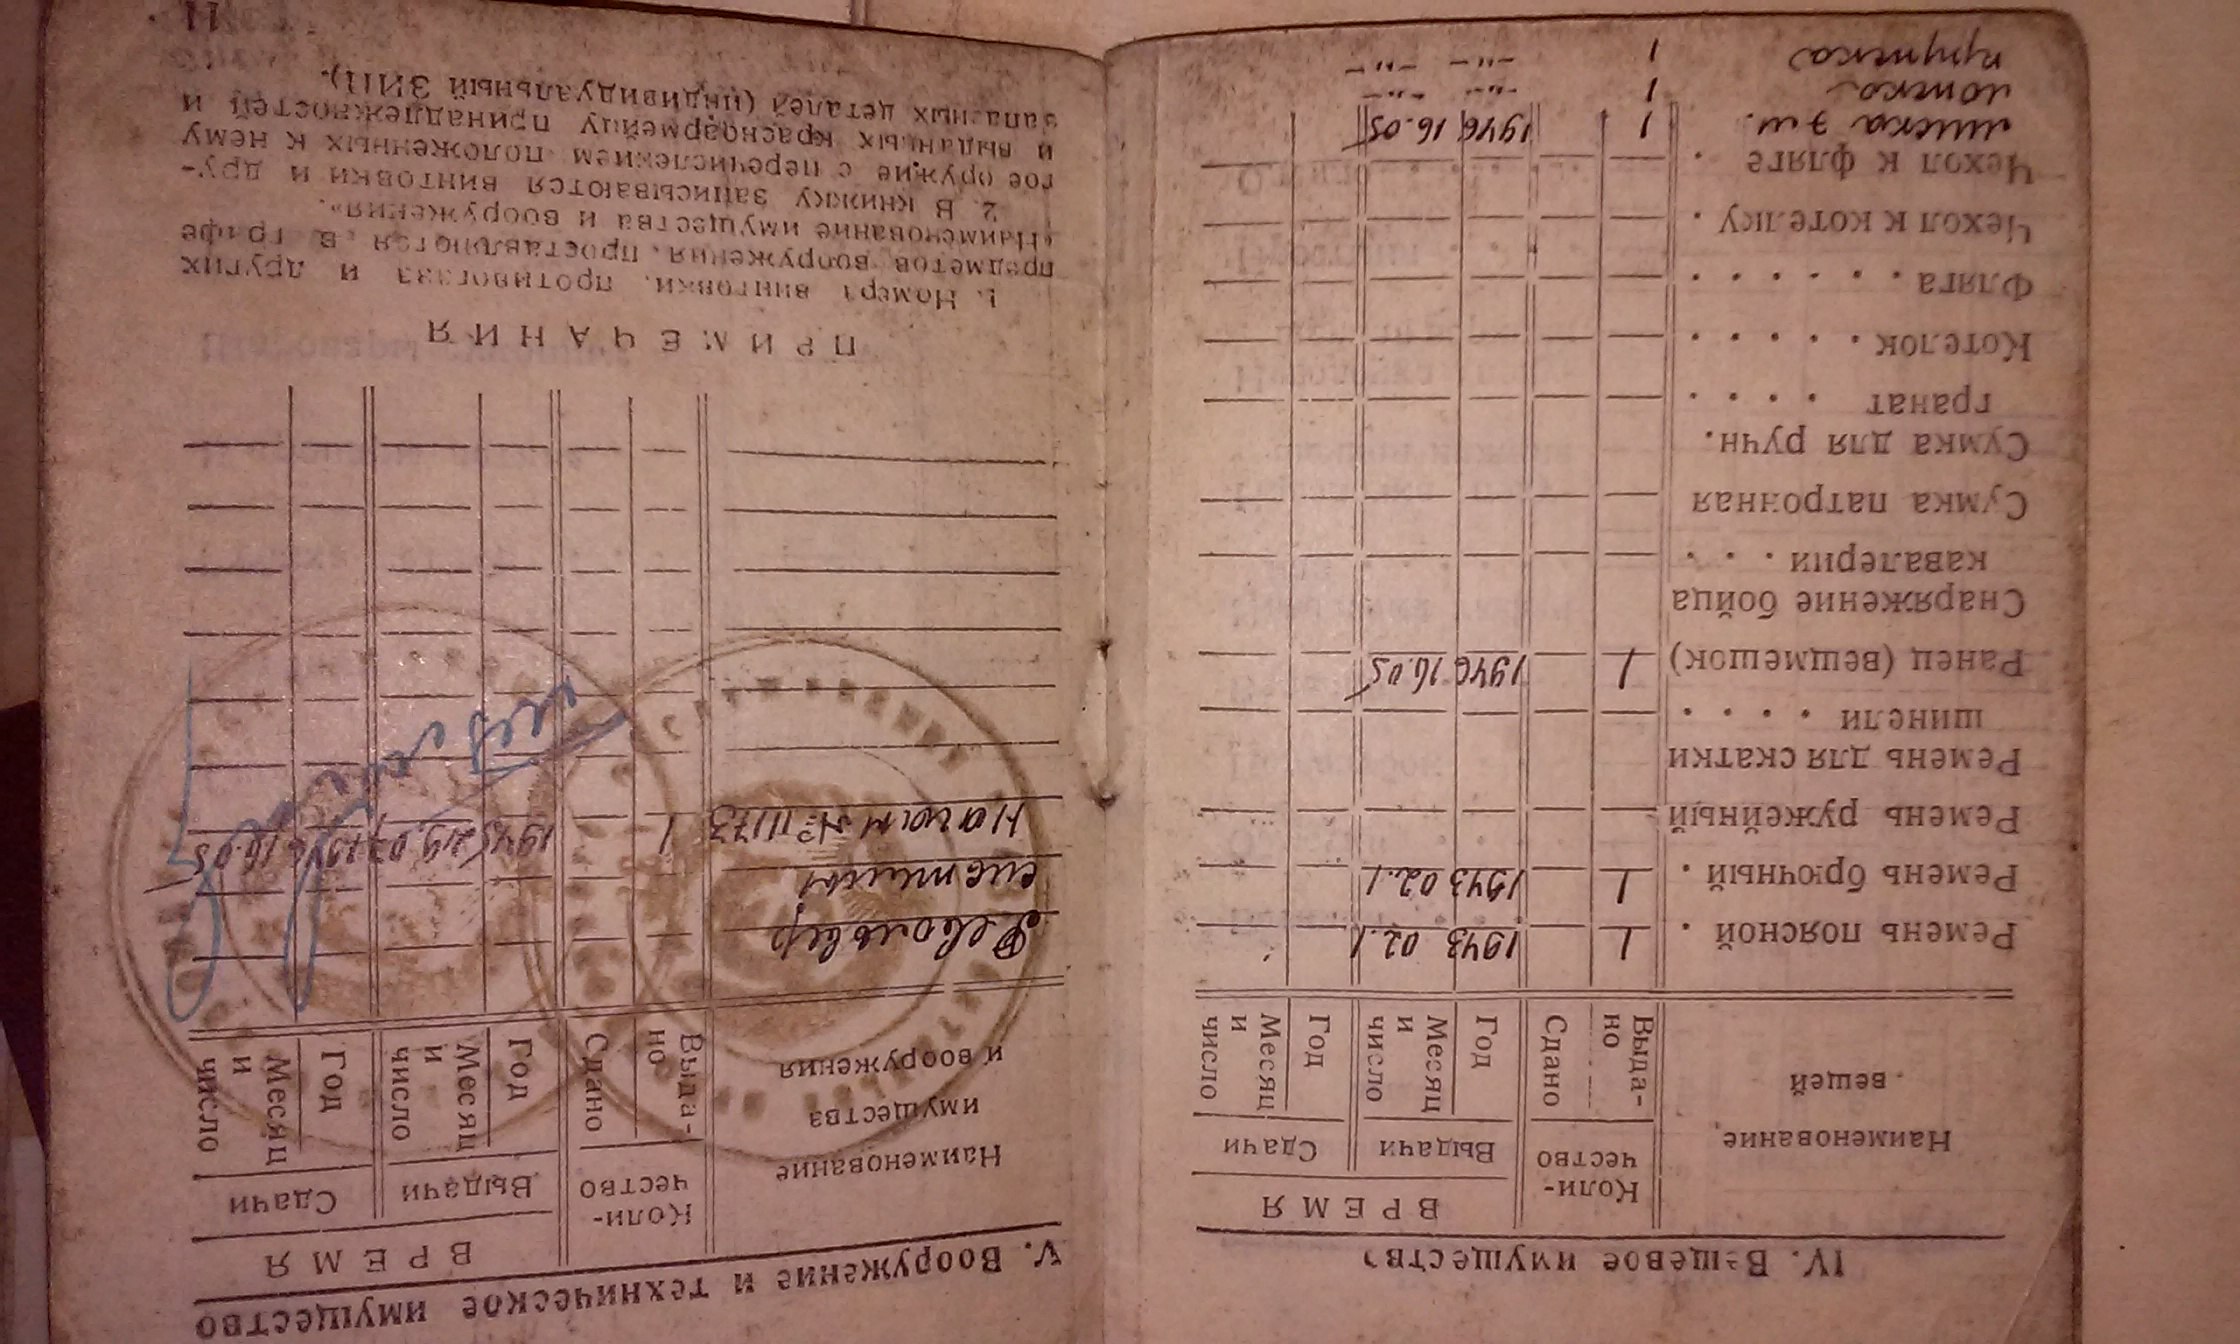 IV. Вещевое имущество
Наименование вещей
Количество
Выдано
Сдано
ВРЕМЯ
Выдачи
Сдачи
Год
Месяц и число
Год
Месяц и число
Ремень поясной . 1 1943 02.1
Ремень брючный . 1 1943 02.1
Ремень ружейный
Ремень для скатки
шинели . . . .
Ранец (вещмешок) 1 1946 16.05
Снаряжение бойца
кавалерии . . .
Сумка патронная
Сумка для ручн.
гранат . . . .
Котелок . . . . .
Фляга . . . . . .
Чехол к котелку .
Чехол к фляге .
миска эм. 1 1946 16.05
ложка 1 -"- -"-
кружка 1 -"- -"-
V. Вооружение и техническое имущество
Наименование
имущества
и вооружения
Коли-
чество
Выда-
но
Сдано
ВРЕМЯ
Выдачи
Сдачи
Год
Месяц
и
число
Год
Месяц
и
число
Револьвер
системы
Наган № 11173 1 1945 1946 16.05
ПРИМЕЧАНИЯ
1. Номера винтовки, противогаз и других
предметов вооружения проставляются в графе
«Наименование имущества и вооружения».
2. В книжку записываются винтовки и дру-
гое оружие с перечислением положенных к нему
и выданных красноармейцу принадлежностей и
запасных деталей (индивидуальный ЗИП).
11